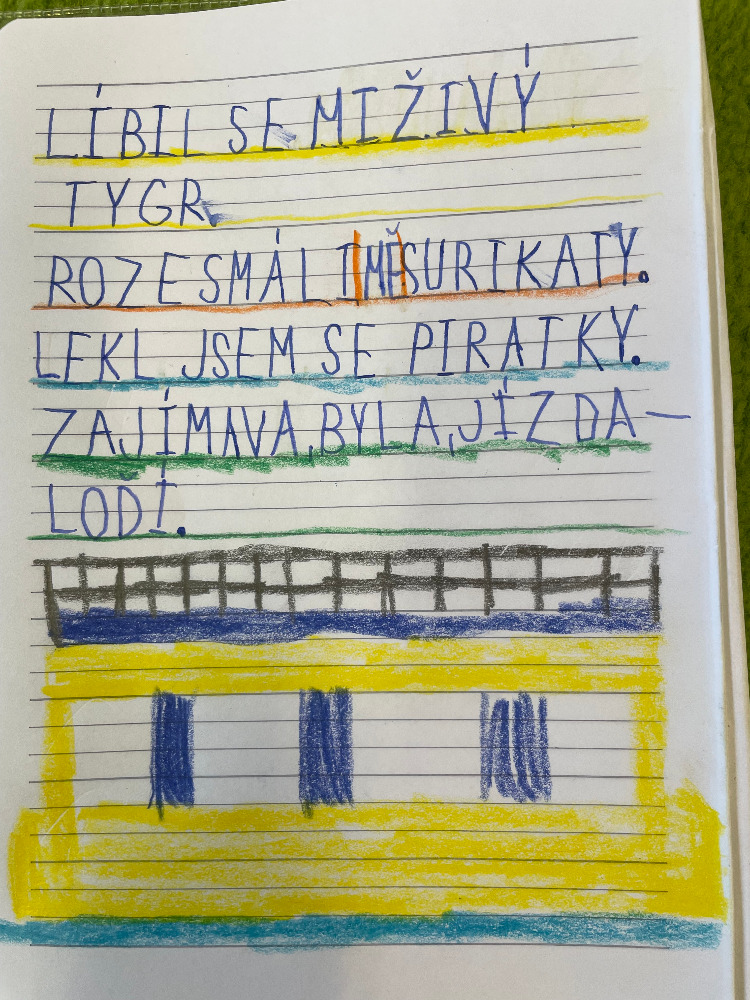 LÍBIL SE MI ŽIVÝ
TYGR
ROZESMÁLI MĚ SURIKATY.
LEKL JSEM SE PIRATKY.
ZAJÍMAVA, BYLA, JÍZDA—
LODÍ.